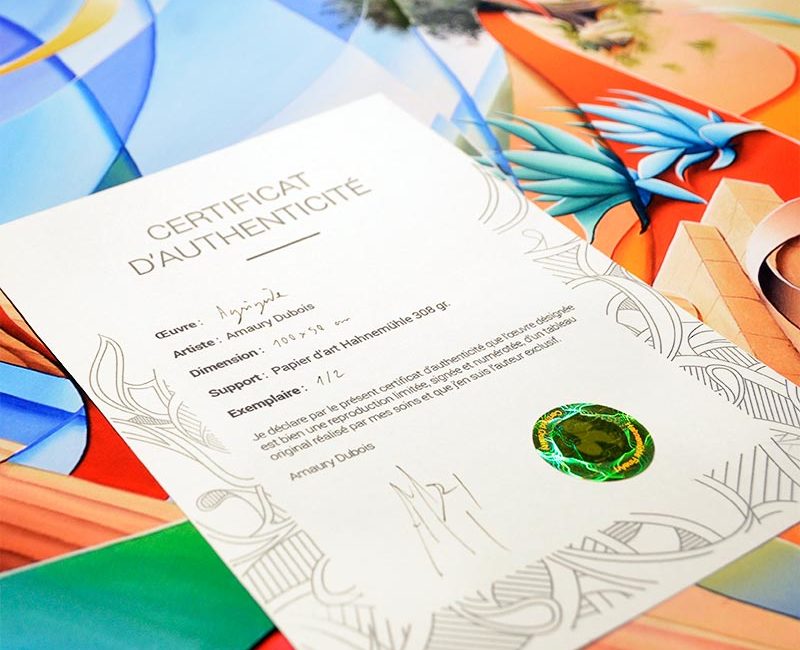 CERTIFICAT
D'AUTHENTICITÉ
Œuvre :
Artiste : Amaury Dubois
Dimension : 100 x 50 cm
Support : Papier d'art Hahnemühle 308 gr.
Exemplaire : 1/2
Je déclare par le présent certificat d'authenticité que l'œuvre désignée
est bien une reproduction limitée, signée et numérotée, d'un tableau
original réalisé par mes soins et que j'en suis l'auteur exclusif.
Amaury Dubois